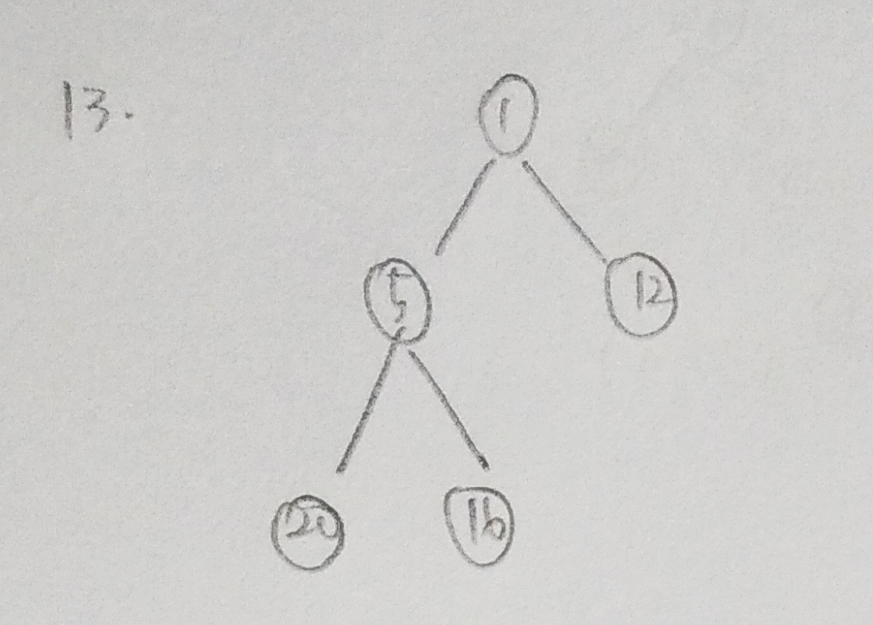 13.
1
5
12
20
16